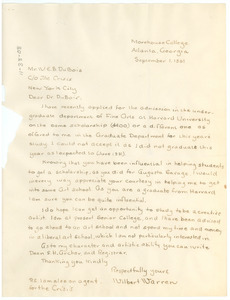 Morehouse College
Atlanta, Georgia
September 1, 1931
Mr. W. E. B. DuBois
C/o The Crisis
New York City
Dear Dr. DuBois:
I have recently applied for the admission in the under-
graduate department of Fine Arts at Harvard University
on the same scholarship ($400) or a different one as
offered to me in the Graduate Department for this year's
Study. I could not accept it as I did not graduate
as I had expected to (June 1931).
Knowing that you have been influential in helping students
to get a scholarship as you did for Augusta Savage, I would
very much appreciate your courtesy in helping me to get
into some Art School. As you are a graduate from Harvard
I am sure you can be quite influential.
I do hope I can get an opportunity to study
Art. I do at present Senior College, and I have been advised
to go ahead to an Art School and not spend my time and money
in a liberal art school which I am not particularly interested in.
As to my character and artistic ability you can write
Dean S. H. Archer and Registrar.
Thanking you kindly
Respectfully yours
Wilbert Warren
P.S. I am also an agent
for the Crisis